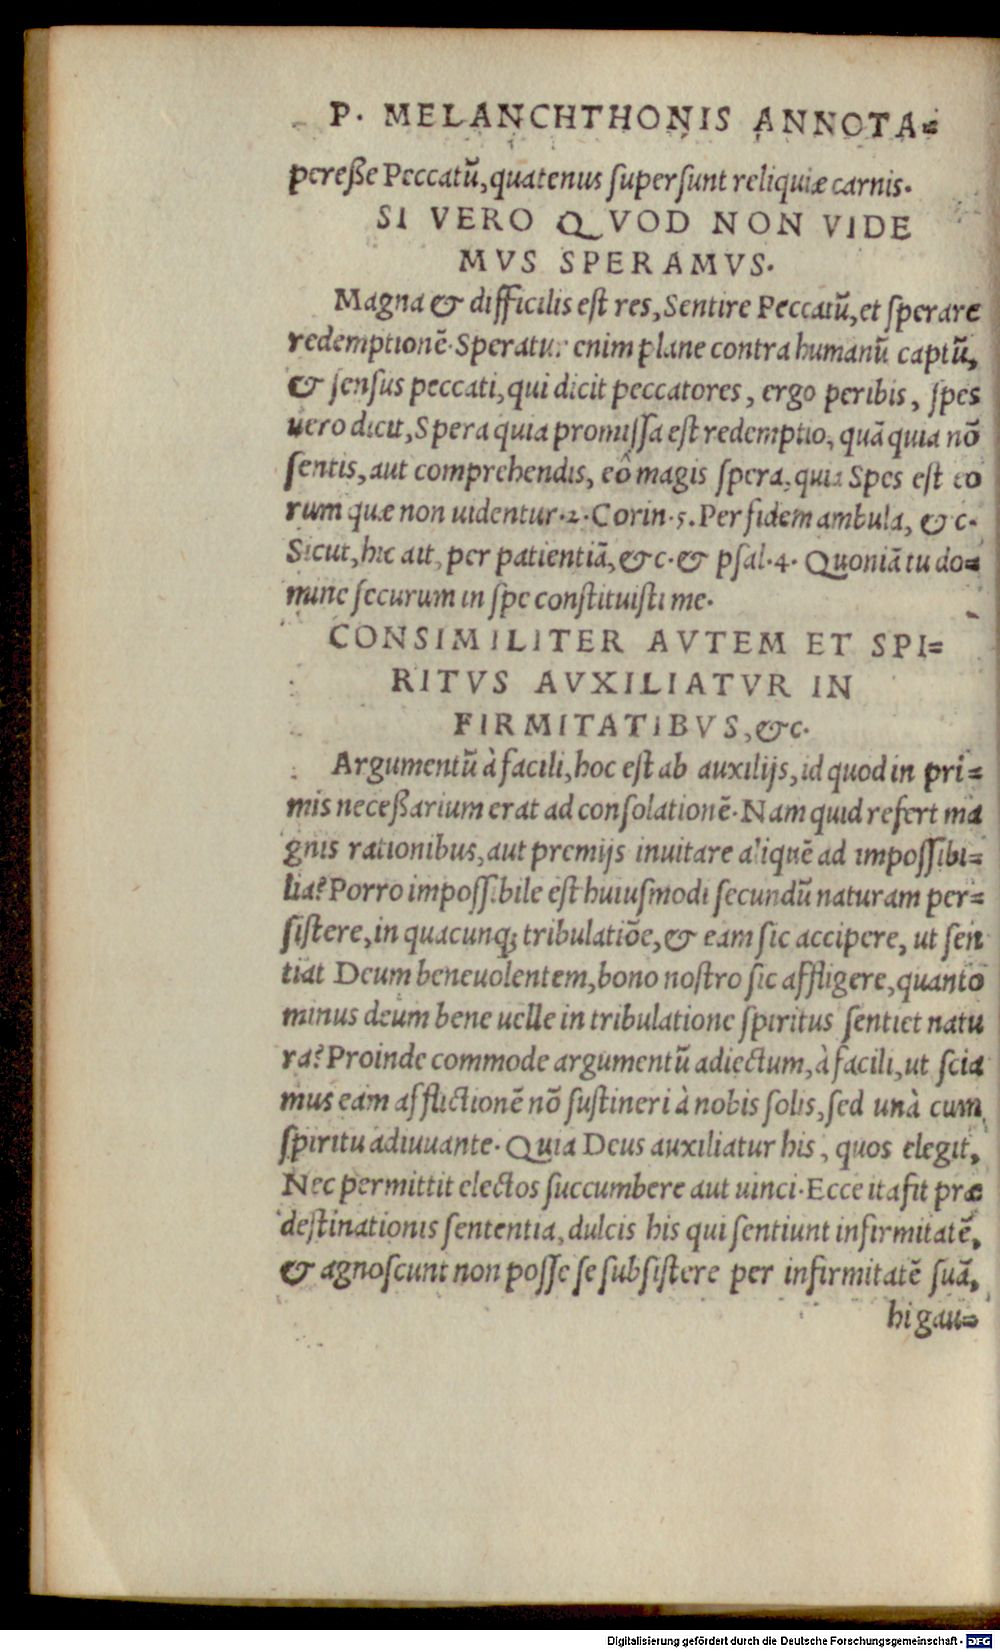 P. MELANCHTHONIS ANNOTA=
pereße Peccatū, quatenus ſuperſunt reliquiæ carnis.
SI VERO QVOD NON VIDE
MVS SPERAMVS.
Magna & difficilis eſt res, Sentire Peccatū, et ſperare
redemptionē. Speratur enim plane contra humanū captū,
& ſenſus peccati, qui dicit peccatores, ergo peribis, ſpes
uero dicit, Spera quia promiſſa eſt redemptio, quā quia nō
ſentis, aut comprehendis, eô magis ſpera, quia Spes eſt eo
rum quæ non uidentur. 2. Corin. 5. Per fidem ambula, &c.
Sicut, hic ait, per patientiā, &c. & pſal. 4. Quoniā tu do=
mine ſecurum in ſpe conſtituiſti me.
CONSIMILITER AVTEM ET SPI=
RITVS AVXILIATVR IN
FIRMITATIBVS, &c.
Argumentū à facili, hoc eſt ab auxilijs, id quod in pri=
mis neceßarium erat ad conſolationē. Nam quid refert ma
gnis rationibus, aut premijs inuitare aliquē ad impoſſibi=
lia? Porro impoſſibile eſt huiuſmodi ſecundū naturam per=
ſiſtere, in quacunq; tribulatiōe, & eam ſic accipere, ut ſen
tiat Deum beneuolentem, bono noſtro ſic affligere, quanto
minus deum bene uelle in tribulatione ſpiritus ſentiet natu
ra? Proinde commode argumentū adiectum, à facili, ut ſcia
mus eam afflictionē nō ſuſtineri à nobis ſolis, ſed unà cum
ſpiritu adiuuante. Quia Deus auxiliatur his, quos elegit,
Nec permittit electos ſuccumbere aut uinci. Ecce ita fit præ
deſtinationis ſententia, dulcis his qui ſentiunt infirmitatē,
& agnoſcunt non poſſe ſe ſubſiſtere per infirmitatē ſuā,
hi gau=
Digitalisierung gefördert durch die Deutsche Forschungsgemeinschaft - DFG